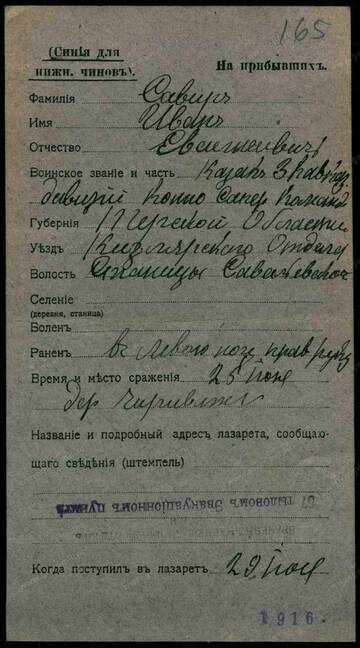 165
(Синія для
нижн. чиновъ).
На прибывшихъ.
Фамилія Савиръ
Имя Иванъ
Отчество Евгеніевичъ
Воинское званіе и часть Казакъ 3 Кавказ.
дивизіи Конно Сапер Команд
Губернія Терской Области
Уѣздъ Кизлярского Отдела
Волость Станицы
Селеніе
(деревня, станица)
Боленъ
Раненъ в левою ногу прав руку
Время и мѣсто сраженія 25 Іюня
дер
Названіе и подробный адресъ лазарета, сообщаю-
щаго свѣдѣнія (штемпель)
67 тыловомъ Эвакуаціонномъ пунктѣ
Когда поступилъ въ лазаретъ 29 Іюня
1916.